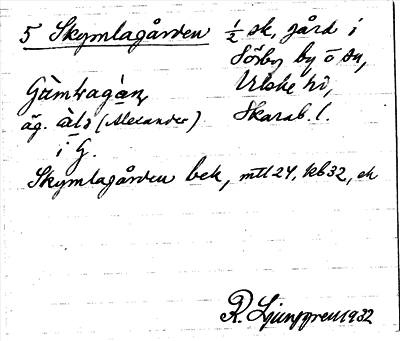 5 Skymlagården 1/2 sk, gård i
Sörby by o sn,
Vilske hd,
Skarab. l.
Gámhagàn,
äg. ald (Alexander)
i G.
Skymlagården bek, mtl 24, kb 32, ek
R. Ljunggren 1932